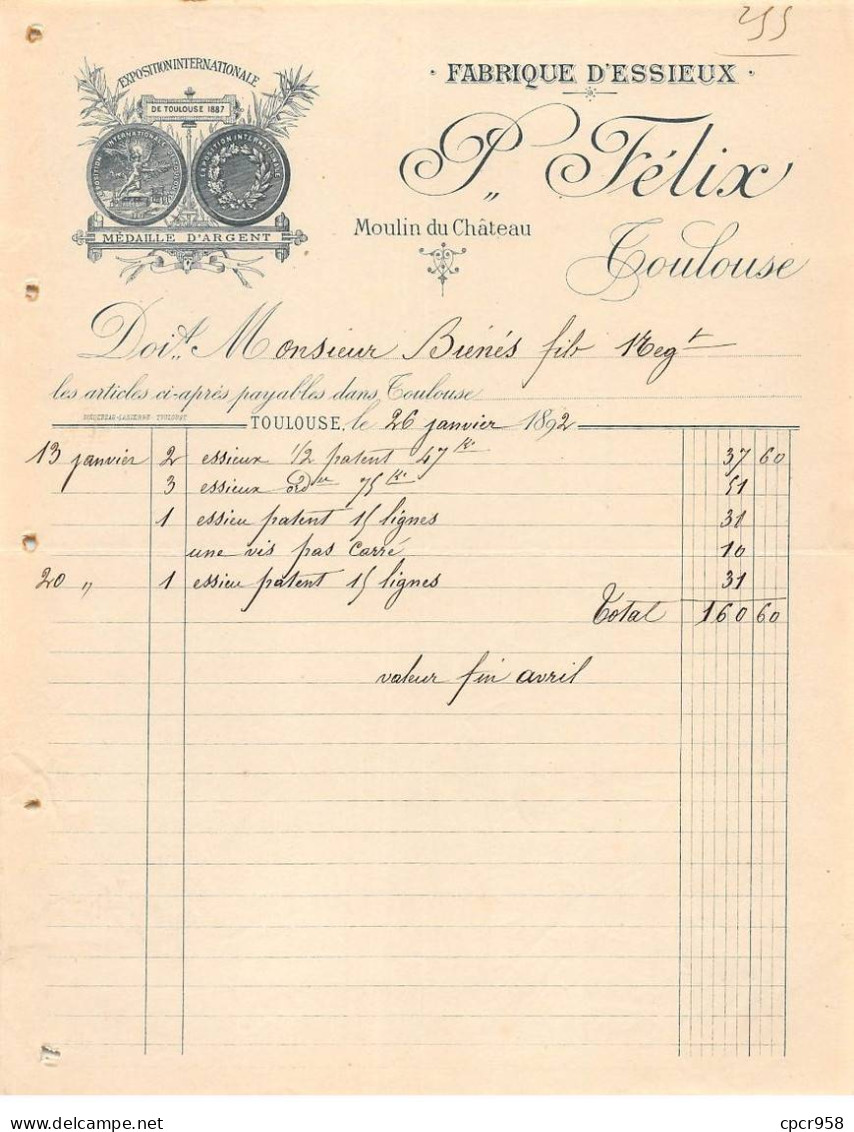 255
EXPOSITION INTERNATIONALE
DE TOULOUSE 1887
EXPOSITION INTERNATIONALE
MÉDAILLE D'ARGENT
· FABRIQUE D'ESSIEUX ·
P. Félix
Moulin du Château
Toulouse
Doit Monsieur Biénés fils Negt
les articles ci-après payables dans Toulouse
TOULOUSE, le 26 janvier 1892
13 janvier 2 essieux 1/2 patent 47 Ks 37 60
3 essieux ordre 75 Ks 51
1 essieu patent 15 lignes 31
une vis pas carré 10
20 " 1 essieu patent 15 lignes 31
Total 160 60
valeur fin avril
cpcr958